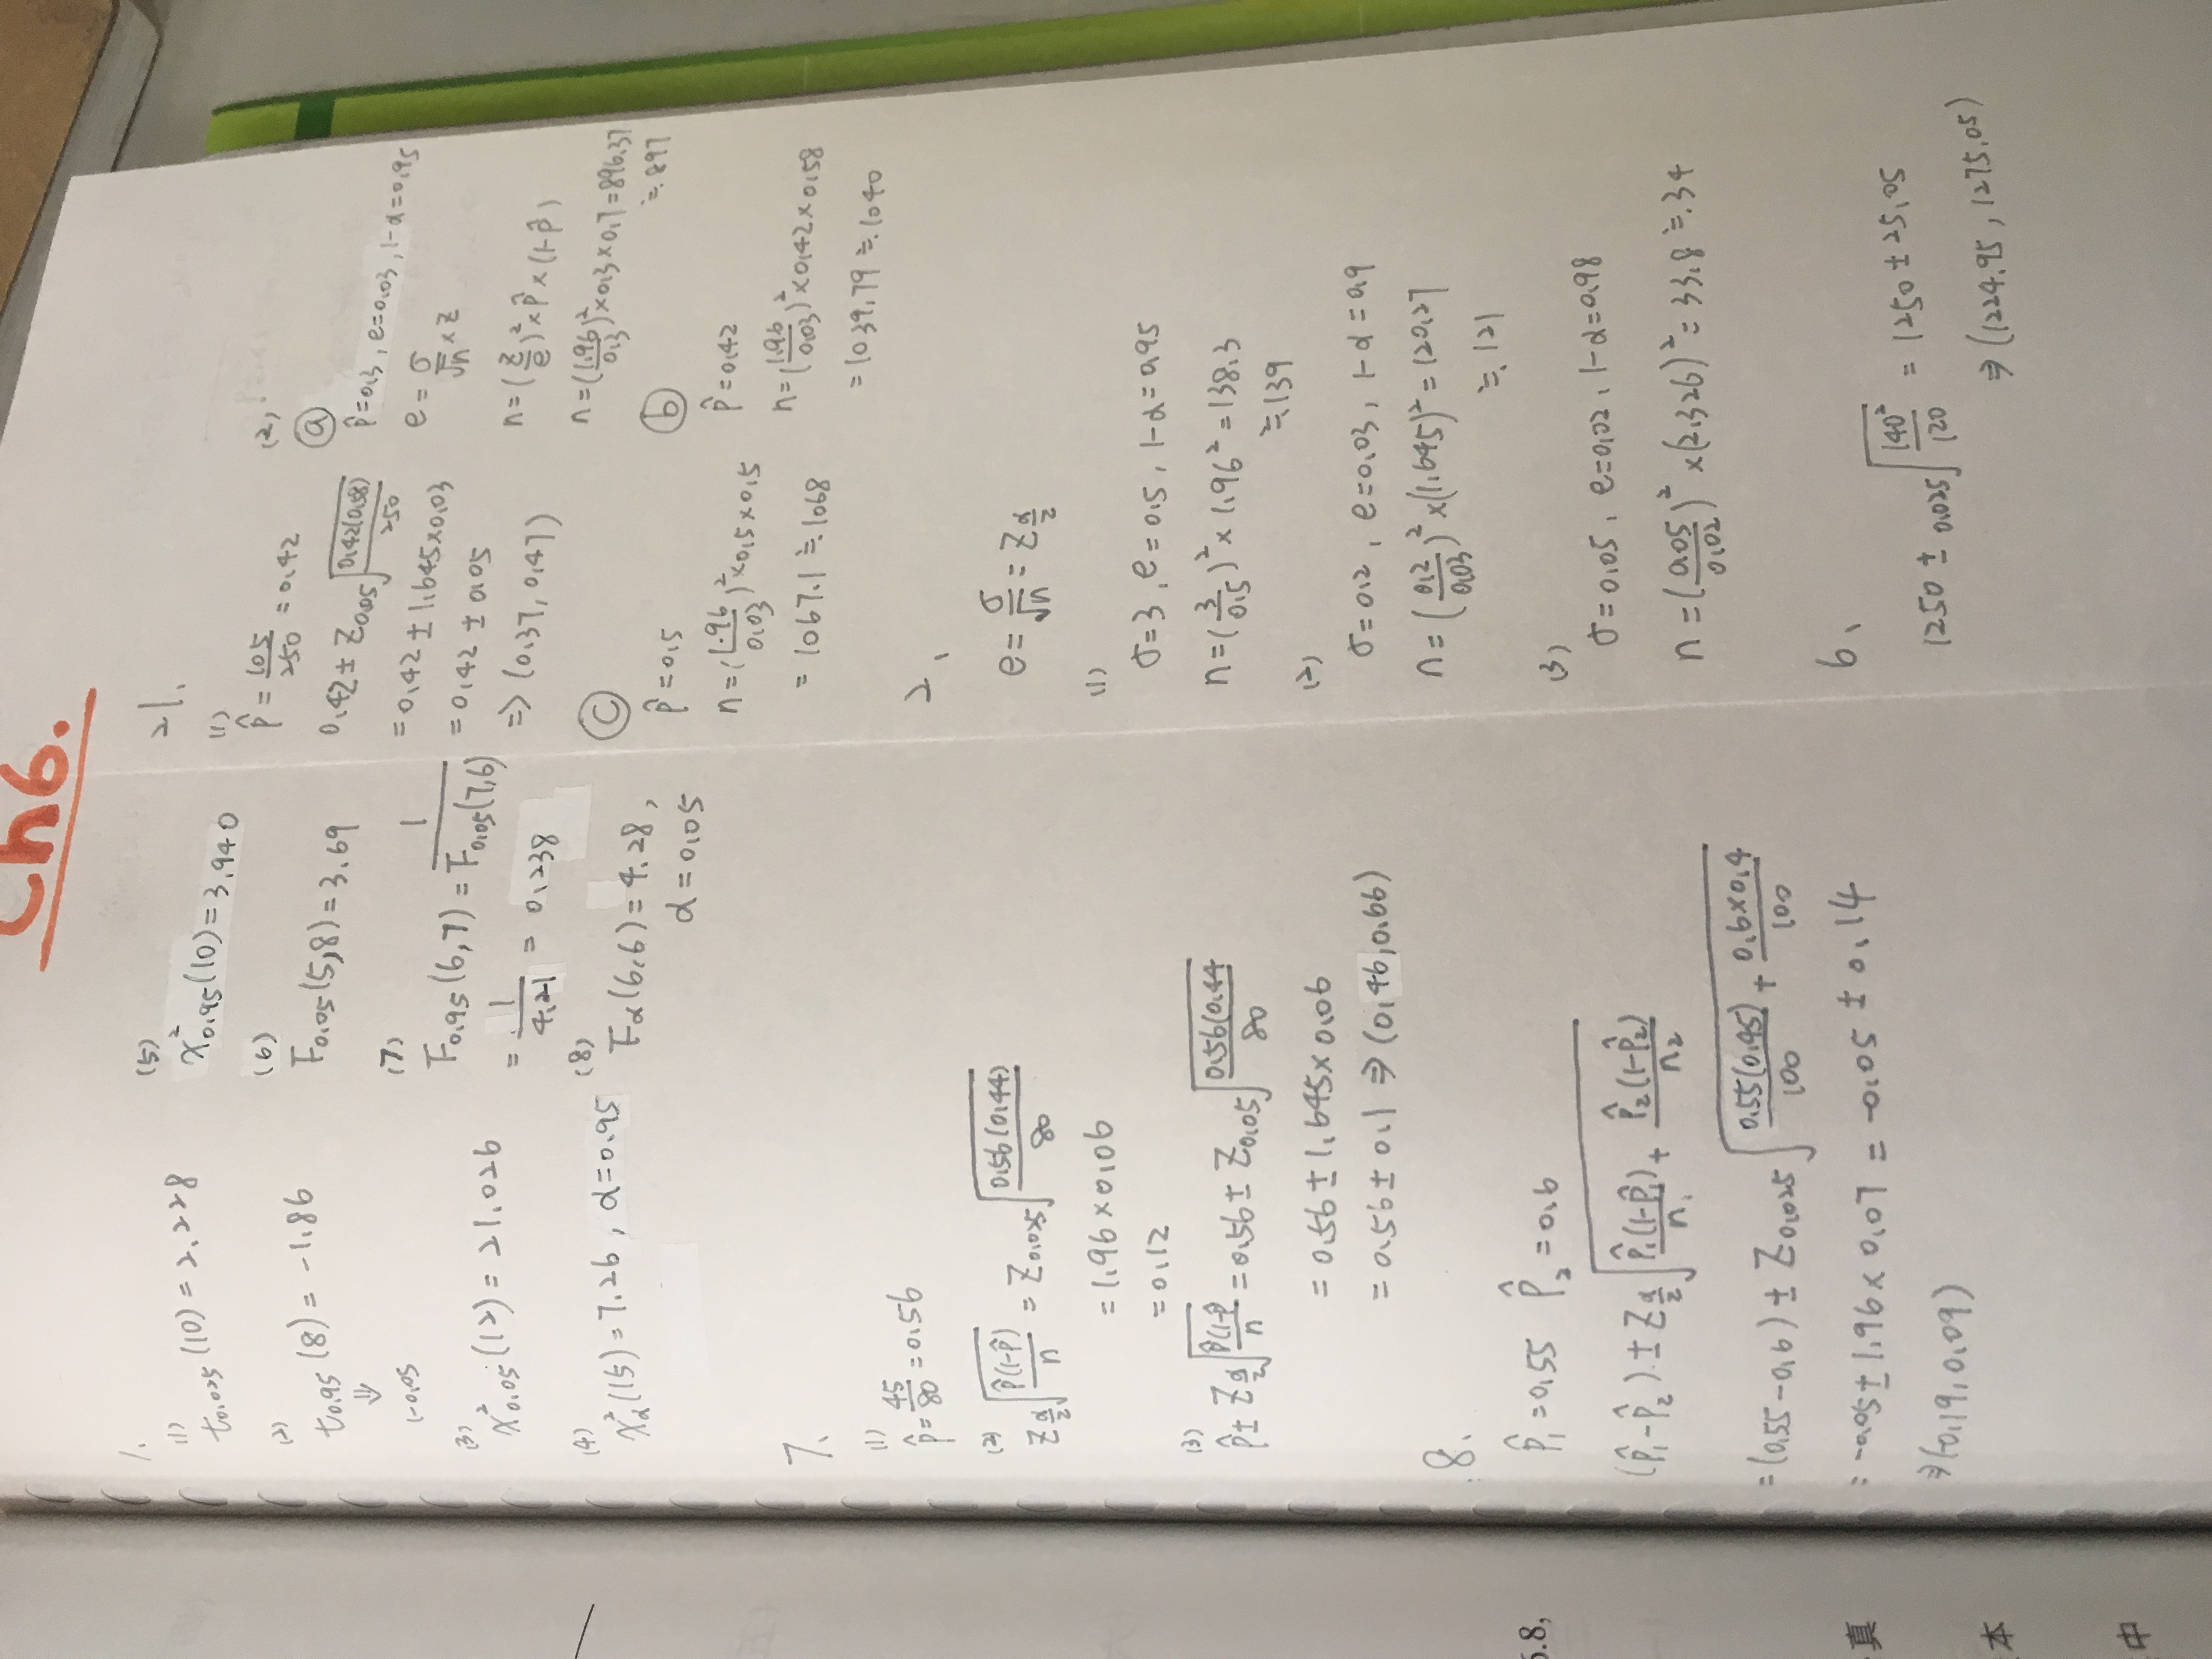 Ch6.
1.
(1)
t0.025(10)=2.228
(2)
t0.95(8)=-1.86
⇓
1-0.05
(3)
χ²0.05(12)=21.026
(4)
χ²α(15)=7.26, α=0.95
(5)
χ²0.95(10)=3.940
(6)
F0.05(5,8)=3.69
(7)
F0.95(6,7)=1/F0.05(7,6)
=1/4.21=0.238
(8)
Fα(6,6)=4.28,
α=0.05
7.
(1)
p̂=45/80=0.56
(2)
Zα/2√(p̂(1-p̂)/n)=Z0.025√(0.56(0.44)/80)
=1.96×0.06
=0.12
(3)
p̂±Zα/2√(p̂(1-p̂/n)=0.56±Z0.05√(0.56(0.44/80)
=0.56±1.645×0.06
=0.56±0.1⇒(0.46,0.66)
8.
p̂1=0.55 p̂2=0.6
(p̂1-p̂2)±Zα/2√(p̂1(1-p̂1)/n1+p̂2(1-p̂2)/n2)
=(0.55-0.6)±Z0.025√(0.55(0.45)/100+0.6×0.4/100)
=-0.05±1.96×0.07=-0.05±0.14
⇒(-0.19,0.09)
21.
(1)
p̂=105/250=0.42
0.42±Z0.05√(0.42(0.58)/250)
=0.42±1.645×0.03
=0.42±0.05
⇒(0.37,0.47)
(2)
ⓐ
p̂=0.3, e=0.03, 1-α=0.95
e=σ/√n×Z
n=(Z/e)²×p̂×(1-p̂)
n=(1.96/0.3)²×0.3×0.7=896.37
≒897
ⓑ
p̂=0.42
n=(1.96/0.03)²×0.42×0.58
=1039.79≒1040
ⓒ
p̂=0.5
n=(1.96/0.03)²×0.5×0.5
=1067.1≒1068
2.
e=σ/√n=Zα/2
(1)
σ=3, e=0.5, 1-α=0.95
n=(3/0.5)²×1.96²=138.3
≒139
(2)
σ=0.2, e=0.03, 1-α=0.9
n=(0.2/0.03)²×(1.645)²=120.27
≒121
(3)
σ=0.05, e=0.02, 1-α=0.98
n=(0.05/0.02)²×(2.326)²=33.8≒34
6.
1250±0.025√(140²/120)=1250±25.05
⇒(1224.95, 1275.05)
6.8,
真
本
中